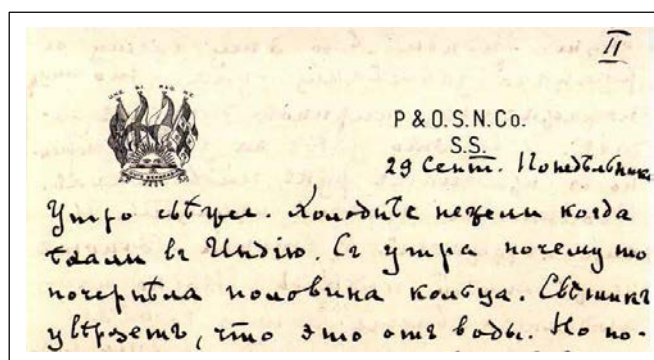 II
P & O. S. N. Co.
S.S.
29 Сент. Понедѣльникъ
Утро свѣжее. Холоднѣе нежели когда
ѣхали въ Индію. Съ утра почему то
почернѣла половина кольца. Свѣтикъ
увѣряетъ, что это отъ воды. Но по-